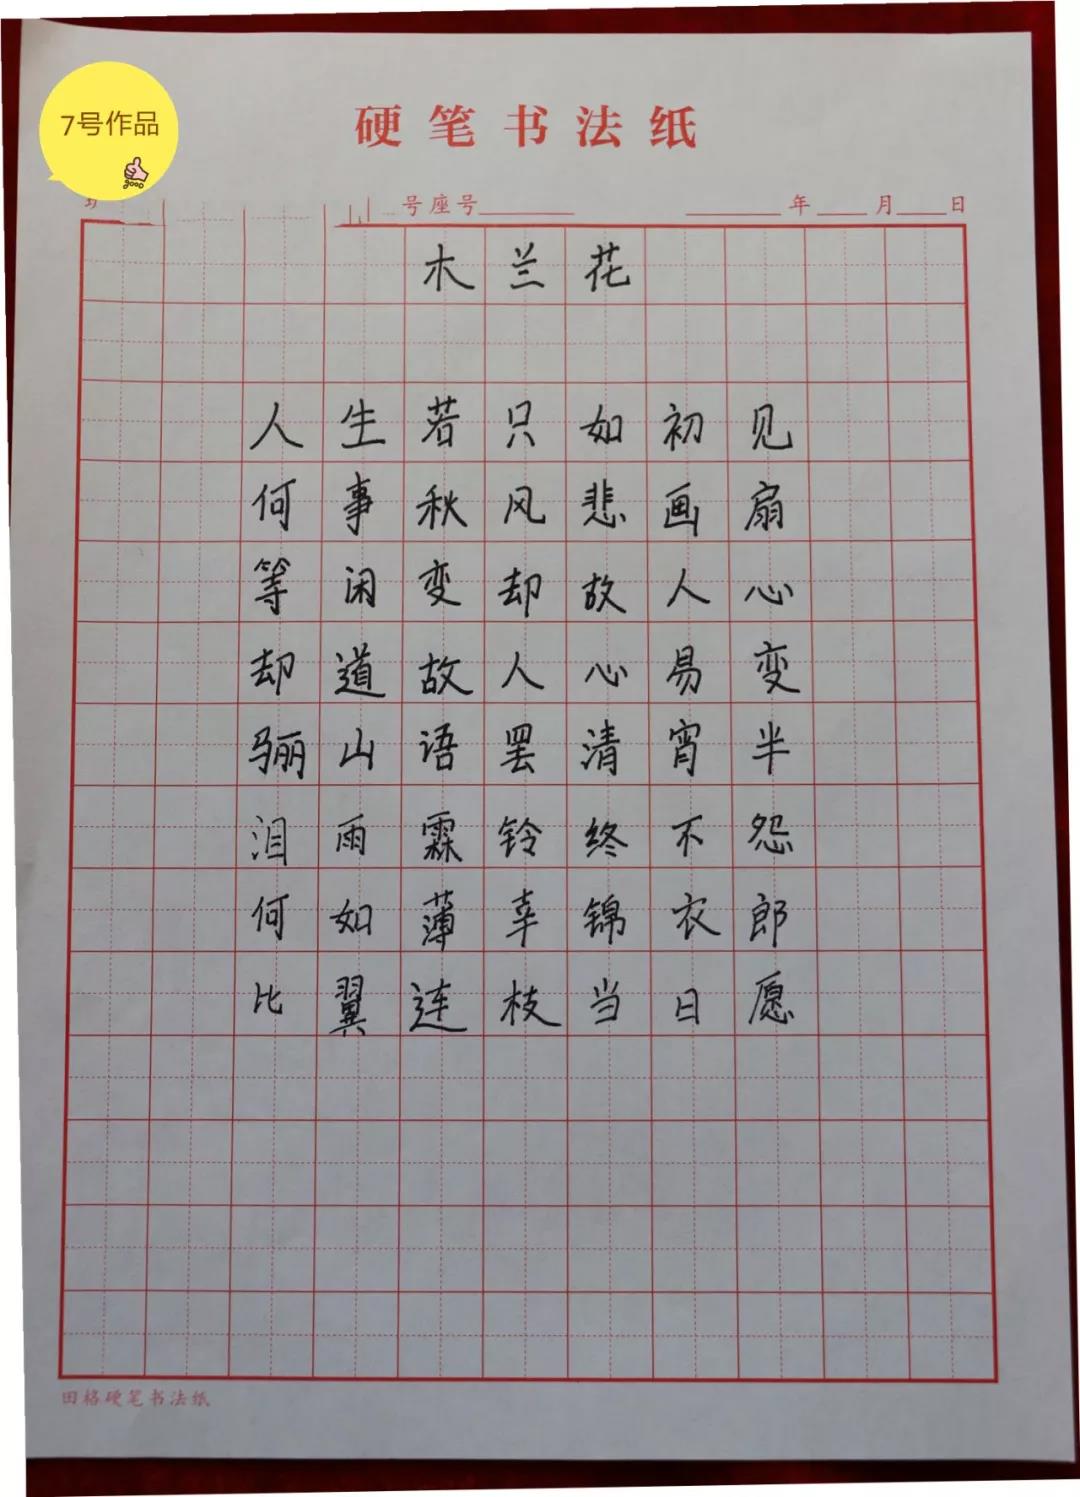 7号作品
good
硬笔书法纸
号座号 年 月 日
木兰花
人生若只如初见
何事秋风悲画扇
等闲变却故人心
却道故人心易变
骊山语罢清宵半
泪雨霖铃终不怨
何如薄幸锦衣郎
比翼连枝当日愿
田格硬笔书法纸